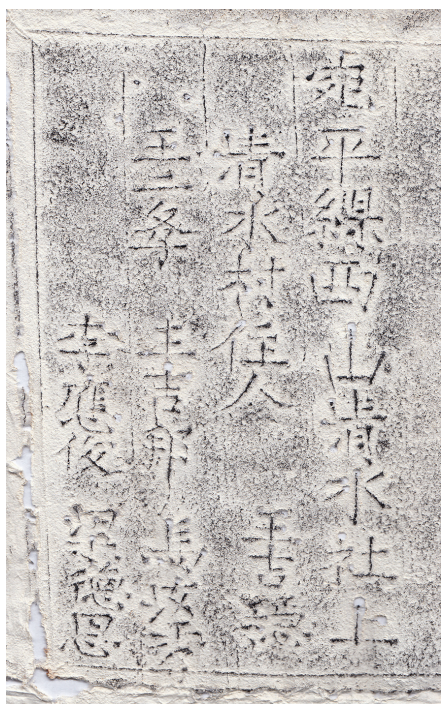 宛平縣西山清水社上
清水村住人 王吉
王三 王吉 張
李應俊 德恩